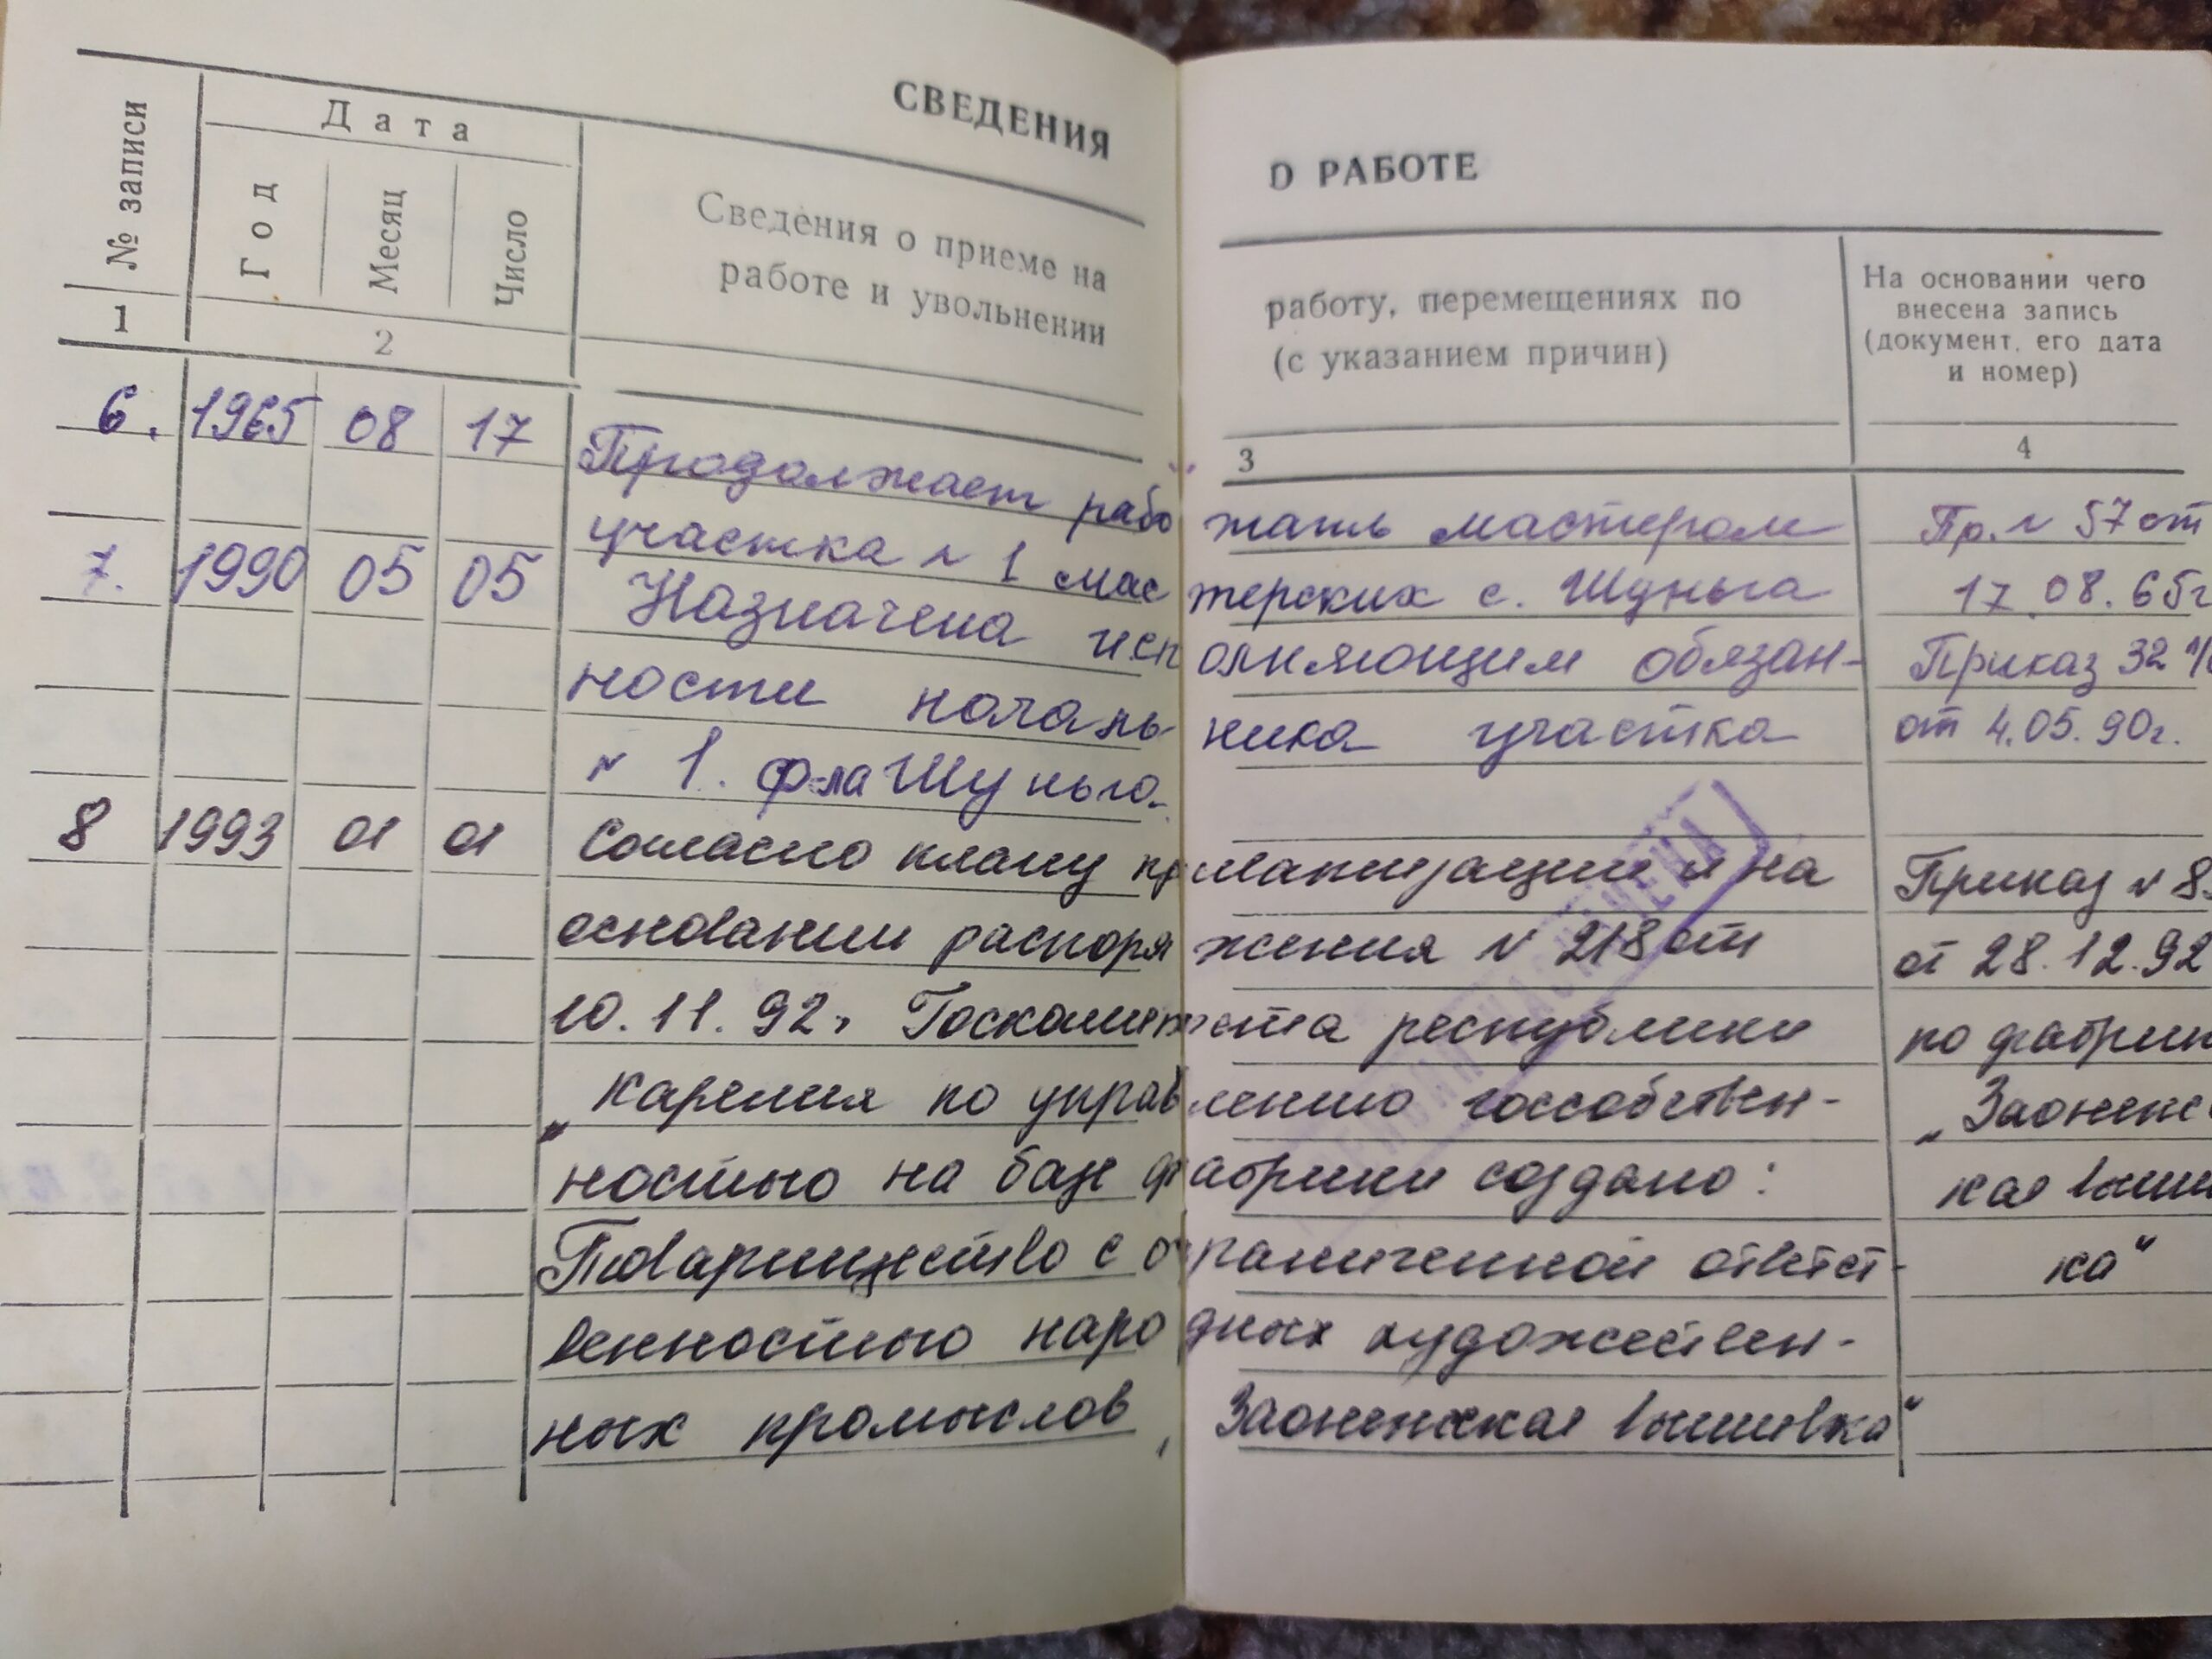 СВЕДЕНИЯ О РАБОТЕ
№ записи
Дата
Год
Месяц
Число
Сведения о приеме на работу, перемещениях по
работе и увольнении (с указанием причин)
На основании чего
внесена запись
(документ, его дата
и номер)
1 2 3 4
6. 1965 08 17 Продолжает работать мастером Пр. № 57 от
участка № 1 мастерских с. Шуньга 17.08.65г
7. 1990 05 05 Назначена исполняющим обязан- Приказ 32
ности начальника участка от 4.05.90г.
№ 1. ф-ла Шуньга.
8 1993 01 01 Согласно плану приватизации и на Приказ № 8
основании распоряжения № 218 от от 28.12.92
10.11.92г Госкомитета республики по фабрик
„Карелия по управлению гособствен- „Заонежс
ностью на базе фабрики создано: кая выши
Товарищество с ограниченной ответст- ка“
венностью народных художествен-
ных промыслов „Заонежская вышивка“